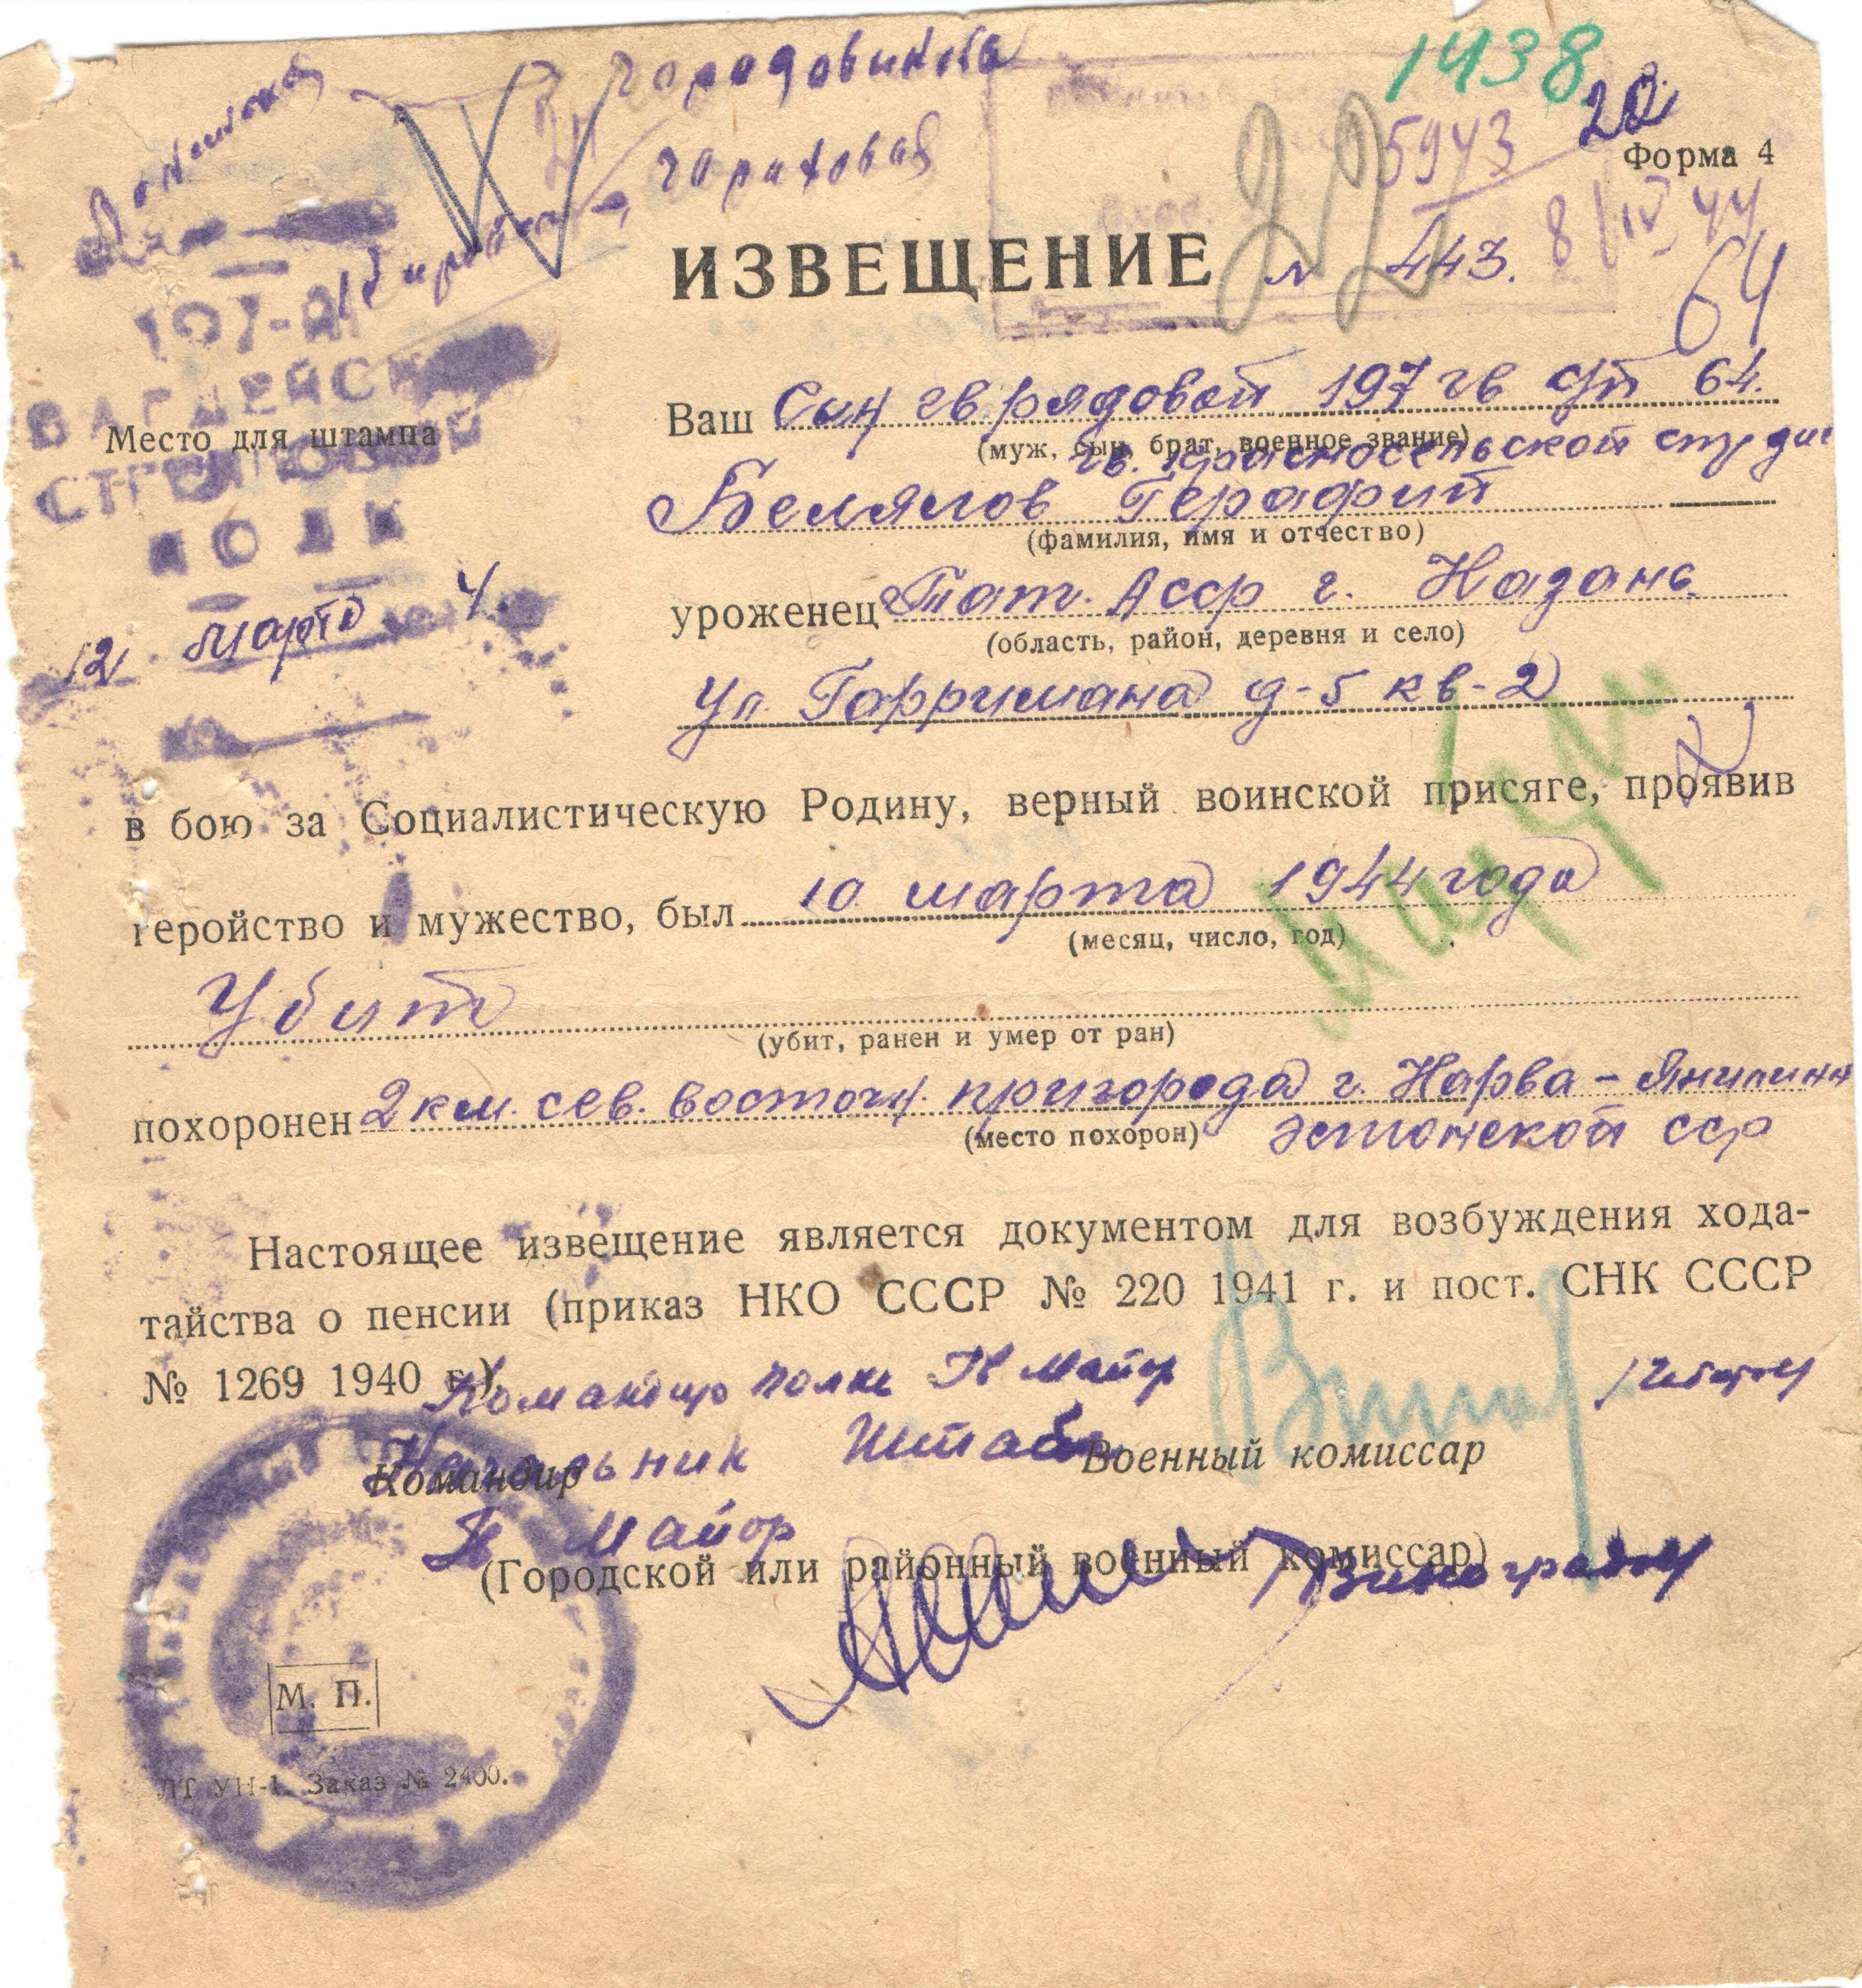 1438
20
5943
Форма 4
8/IV 44
ИЗВЕЩЕНИЕ N 443.
64
197-Й
ГВАРДЕЙСКИЙ
СТРЕЛКОВЫЙ
ПОЛК
Место для штампа
12 марта 4.
Ваш Сын гв. рядовой 197 гв сп 64.
(муж, сын, брат, военное звание)
гв. красносельской стр. див
Белялов Герафит
(фамилия, имя и отчество)
уроженец Тат. Асср г. Казань
(область, район, деревня и село)
Ул. Гарримана д-5 кв-2
в бою за Социалистическую Родину, верный воинской присяге, проявив
геройство и мужество, был 10 марта 1944 года
(месяц, число, год)
Убит
(убит, ранен и умер от ран)
похоронен 2 км. сев. восточн. пригорода г. Нарва –
(место похорон)
Эстонской сср
Настоящее извещение является документом для возбуждения хода-
тайства о пенсии (приказ НКО СССР № 220 1941 г. и пост. СНК СССР
№ 1269 1940 г.).
полка Гв Майор
Начальник Штаба
Командир
Военный комиссар
Гв Майор
(Городской или районный военный комиссар)
Виноградов
М. П.
ЛТ УН-1. Заказ № 2400.